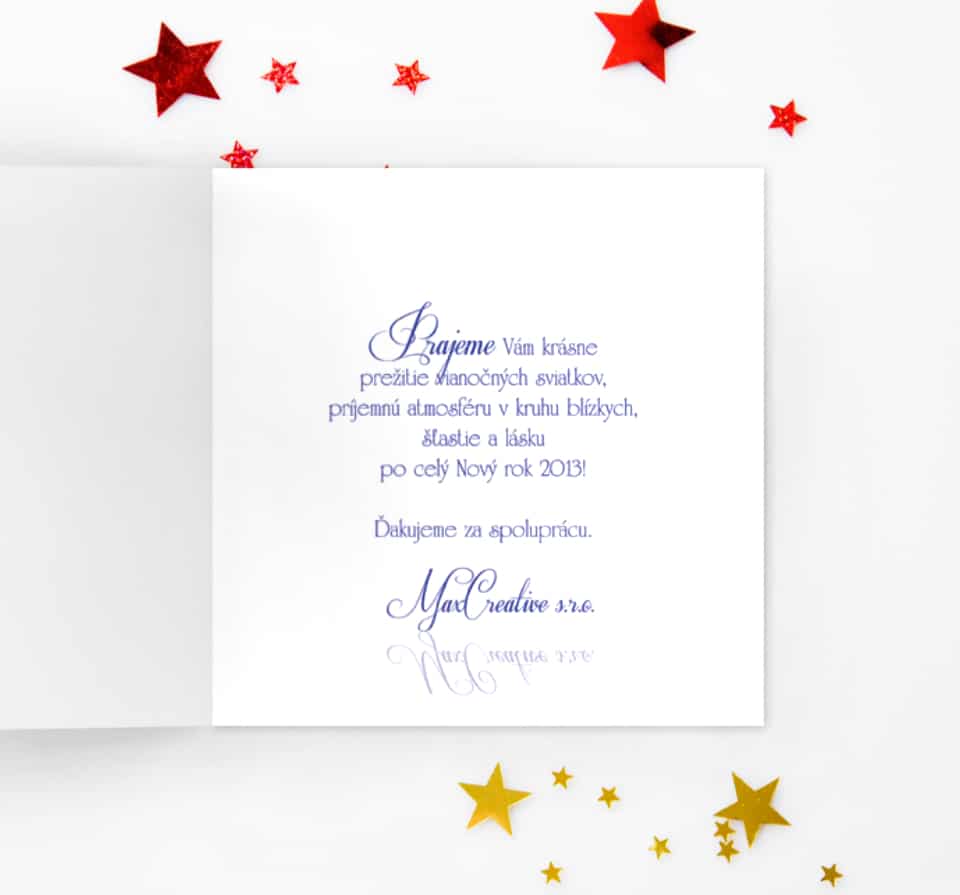 Prajeme Vám krásne
prežitie vianočných sviatkov,
príjemnú atmosféru v kruhu blízkych,
šťastie a lásku
po celý Nový rok 2013!
Ďakujeme za spoluprácu.
MaxCreative s.r.o.